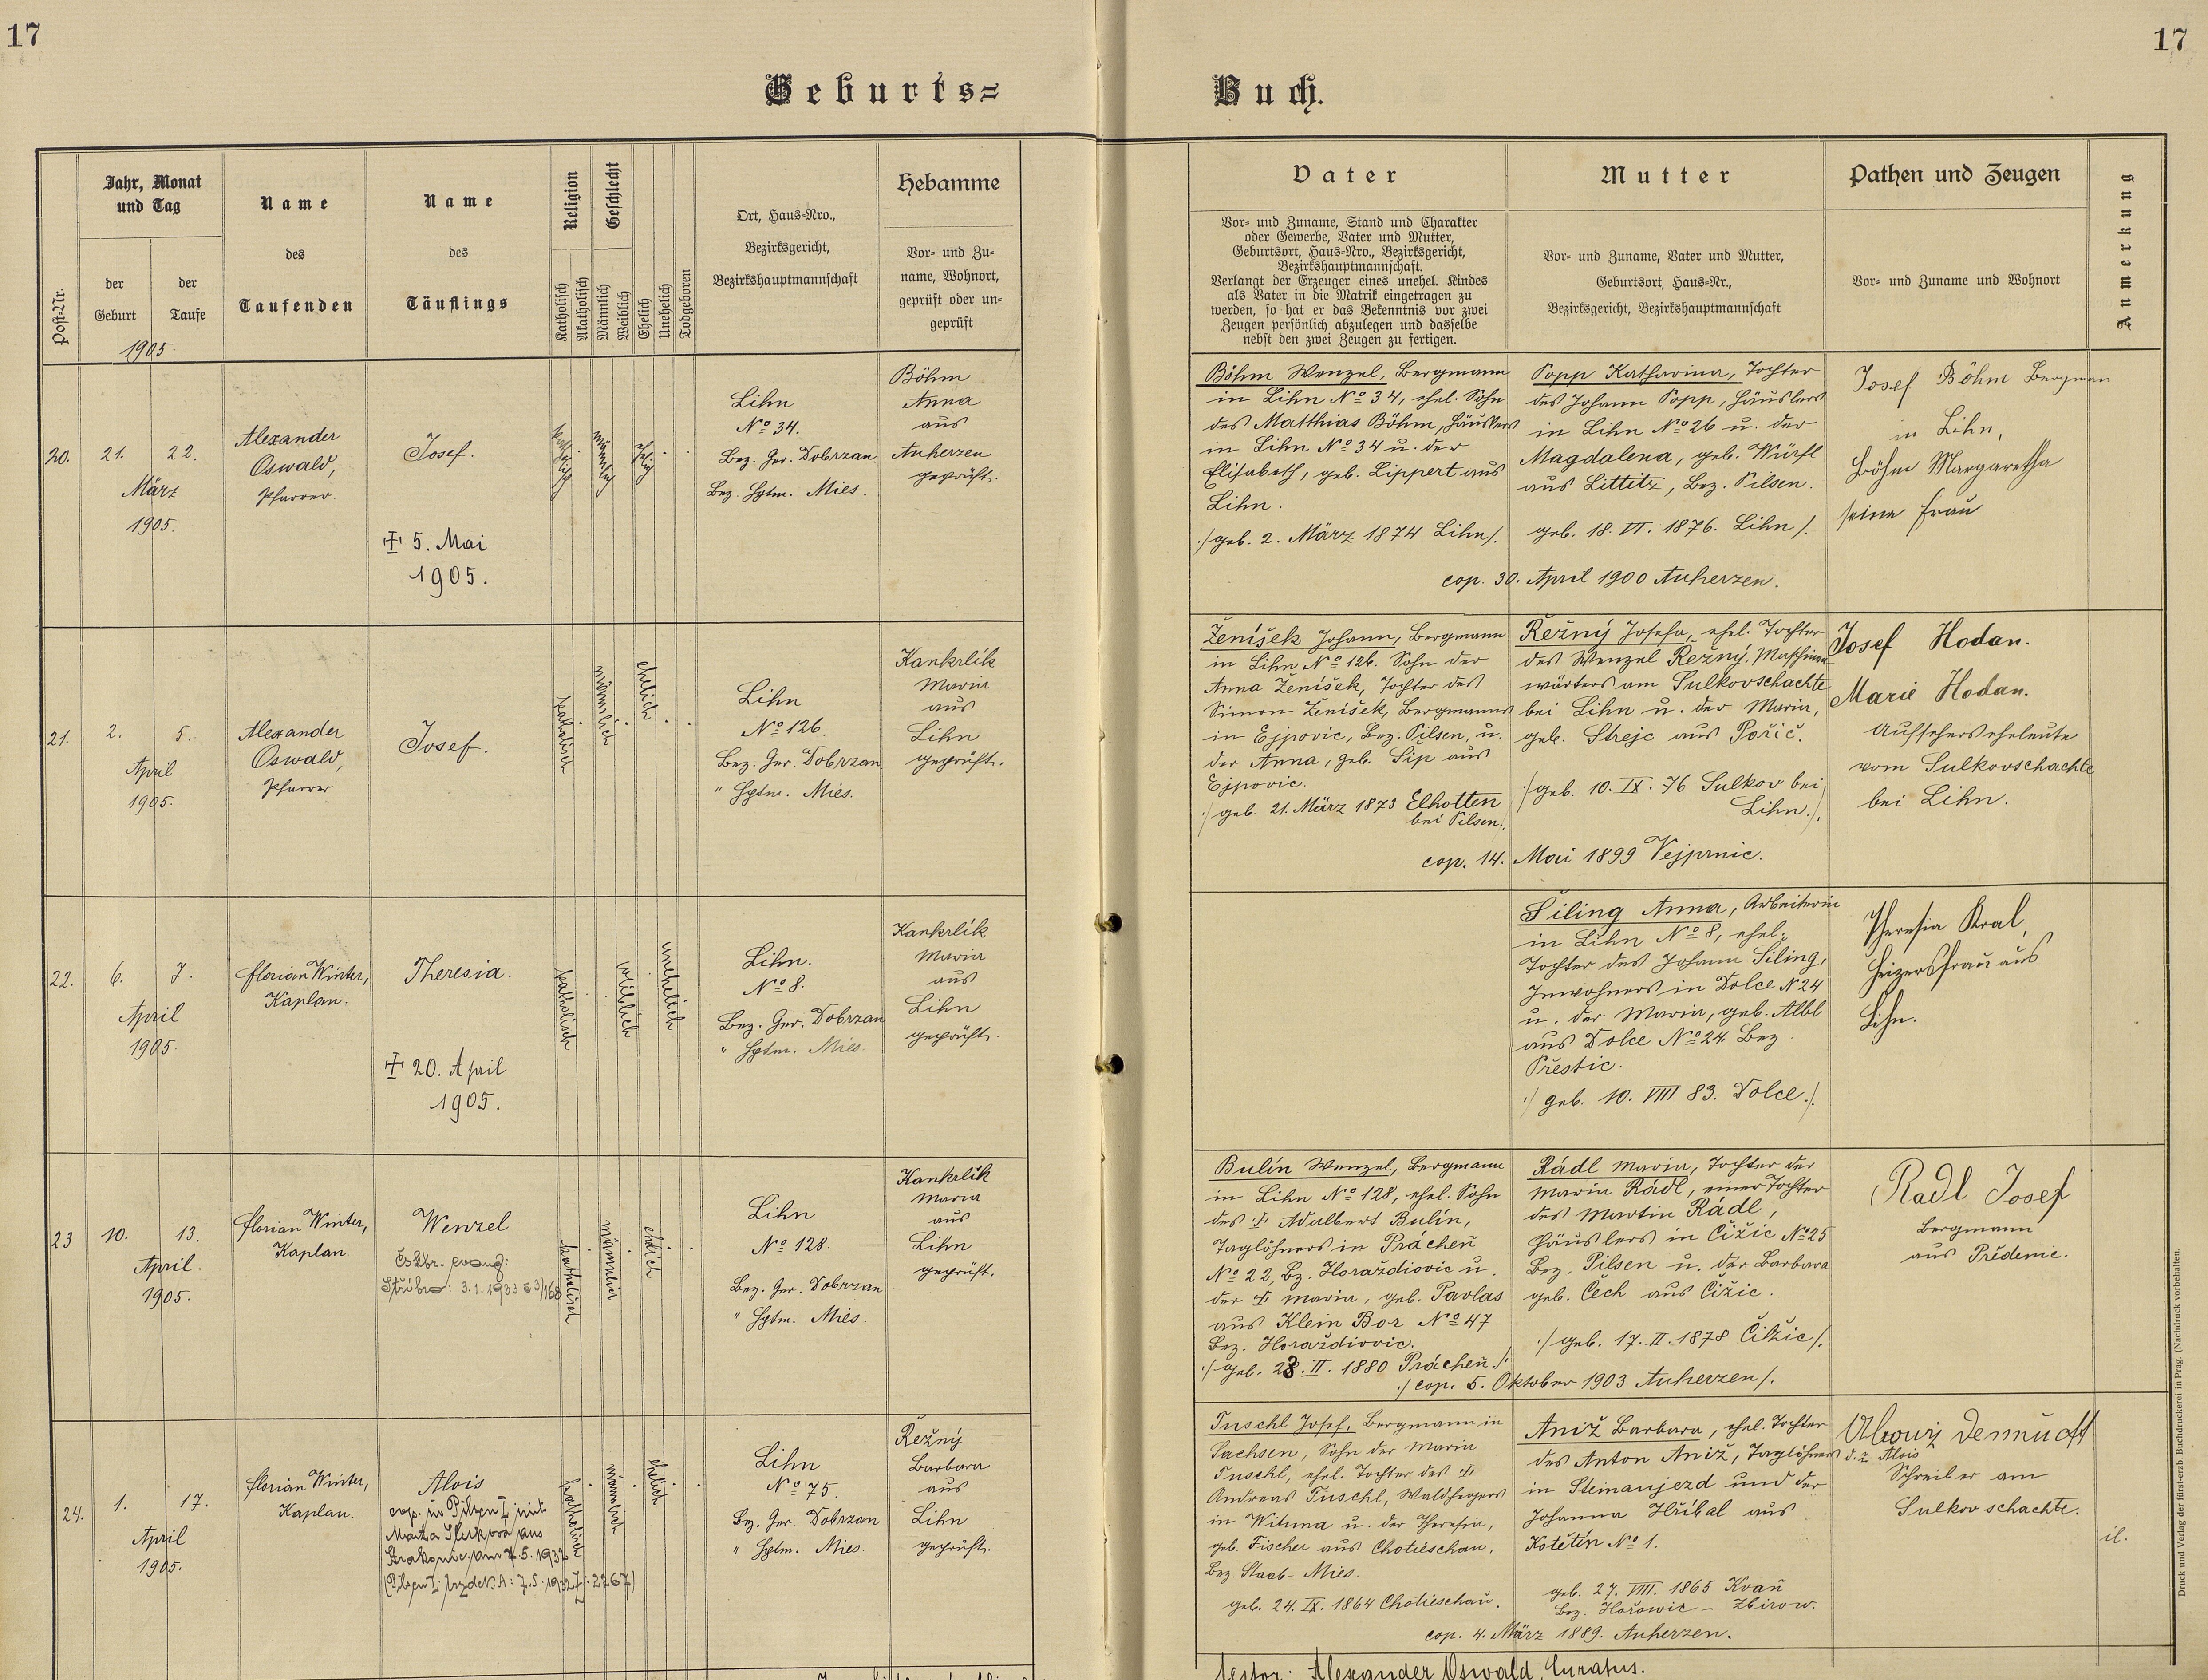 17
17
Geburts=
Buch.
Post-Nr.
Jahr, Monat
und Tag
der
Geburt
der
Taufe
1905.
Name
des
Taufenden
Name
des
Täuflings
Religion
Katholisch
Akatholisch
Geschlecht
Männlich
Weiblich
Ehelich
Unehelich
Todgeboren
Ort, Haus=Nro.,
Bezirksgericht,
Bezirkshauptmannschaft
Hebamme
Vor= und Zu=
name, Wohnort,
geprüft oder un=
geprüft
Vater
Vor= und Zuname, Stand und Charakter
oder Gewerbe, Vater und Mutter,
Geburtsort, Haus=Nro., Bezirksgericht,
Bezirkshauptmannschaft.
Verlangt der Erzeuger eines unehel. Kindes
als Vater in die Matrik eingetragen zu
werden, so hat er das Bekenntnis vor zwei
Zeugen persönlich abzulegen und dasselbe
nebst den zwei Zeugen zu fertigen.
Mutter
Vor= und Zuname, Vater und Mutter,
Geburtsort, Haus=Nr.,
Bezirksgericht, Bezirkshauptmannschaft
Pathen und Zeugen
Vor= und Zuname und Wohnort
Anmerkung
20.
21. 22.
März
1905.
Alexander
Oswald,
Pfarrer.
Josef.
✝ 5. Mai
1905.
katholisch
männlich
ehelich
Lihn
No 34.
Bez. Ger. Dobrzan.
Bez. Hptm. Mies.
Böhm
Anna
aus
Auherzen
geprüft.
Böhm Wenzel, Bergmann
in Lihn No 34, ehel. Sohn
des Matthias Böhm, Häuslers
in Lihn No 34 u. der
Elisabeth, geb. Lippert aus
Lihn.
./geb. 2. März 1874 Lihn/.
Popp Katharina, Tochter
des Johann Popp, Häuslers
in Lihn No 26 u. der
Magdalena, geb. Würfl
aus Littitz, Bez. Pilsen.
geb. 18. VI. 1876. Lihn/.
cop. 30. April 1900 Auherzen.
Josef Böhm Bergman
in Lihn,
Böhm Margaretha
seine Frau
21.
2. 5.
April
1905.
Alexander
Oswald,
Pfarrer
Josef.
katholisch
männlich
ehelich
Lihn
No 126.
Bez. Ger. Dobrzan
" Hptm. Mies.
Kankrlik
Maria
aus
Lihn
geprüft.
Ženíšek Johann, Bergmann
in Lihn No 126. Sohn der
Anna Ženíšek, Tochter des
Simon Ženíšek, Bergmanns
in Ejpovic, Bez. Pilsen, u.
der Anna, geb. Šíp aus
Ejpovic.
./geb. 21. März 1873 Elhotten
bei Pilsen.
Řežný Josefa, ehel. Tochter
des Wenzel Řežný, Maschinen
wärters am Sulkovschachte
bei Lihn u. der Maria,
geb. Strejc aus Pořič.
./geb. 10. IX. 76 Sulkov bei
Lihn./.
cop. 14. Mai 1899 Vejprnic.
Josef Hodan.
Marie Hodan.
Aufseherseheleute
vom Sulkovschachte
bei Lihn.
22.
6. 7.
April
1905.
Florian Winter,
Kaplan.
Theresia.
✝ 20. April
1905.
katholisch
weiblich
unehelich
Lihn.
No 8.
Bez. Ger. Dobrzan
" Hptm. Mies.
Kankrlik
Maria
aus
Lihn
geprüft.
Šiling Anna, Arbeiterin
in Lihn No 8, ehel.
Tochter des Johann Šiling,
Inwohners in Dolce N 24
u. der Maria, geb. Albl
aus Dolce No 24 Bez.
Přestic.
./geb. 10. VIII 83. Dolce./.
Theresia Kral,
Heizersfrau aus
Lihn.
23
10. 13.
April.
1905.
Florian Winter,
Kaplan.
Wenzel
Čsbr. evang:
Stříbro: 3.1.1933 č 3/168
katholisch
männlich
ehelich
Lihn
No 128.
Bez. Ger. Dobrzan
" Hptm. Mies.
Kankrlik
Maria
aus
Lihn
geprüft.
Bulín Wenzel, Bergmann
in Lihn No 128, ehel. Sohn
des ✝ Adalbert Bulín,
Taglöhners in Prácheň
No 22, Bz. Horaždiovic u.
der ✝ Maria, geb. Pavlas
aus Klein Bor No 47
Bez. Horaždiovic.
./geb. 23. II. 1880 Prácheň./.
Rádl Maria, Tochter der
Maria Rádl, einer Tochter
des Martin Rádl,
Häuslers in Čižic No 25
Bez. Pilsen u. der Barbara
geb. Čech aus Čižic.
./geb. 17. II. 1878 Čižic/.
./cop. 5. Oktober 1903 Auherzen/.
Radl Josef
Bergmann
aus Předenic.
24.
1. 17.
April
1905.
Florian Winter,
Kaplan.
Alois
cop. in Pilsen I mit
aus
am 7.5.1932
katholisch
männlich
ehelich
Lihn
No 75.
Bz. Ger. Dobrzan
" Hptm. Mies.
Řežný
Barbara
aus
Lihn
geprüft.
Tuschl Josef, Bergmann in
Sachsen, Sohn der Maria
Tuschl, ehel. Tochter des ✝
Andreas Tuschl, Waldhegers
in Wituna u. der Theresia,
geb. Fischer aus Chotieschau.
Bez. Staab - Mies.
geb. 24. IX. 1864 Chotieschau.
Aniž Barbara, ehel. Tochter
des Anton Aniž, Taglöhners
in Steinaujezd und der
Johanna Hřibal aus
Kotětín No 1.
geb. 27. VIII. 1865 Kvaň
Bez. Hořowic - Zbirow.
cop. 4. März 1889. Auherzen.
d. i. Alois
Schreiber am
Sulkovschachte.
il.
Testor: Alexander Oswald, Curatus.
Druck und Verlag der fürst-erzb. Buchdruckerei in Prag. (Nachdruck vorbehalten.